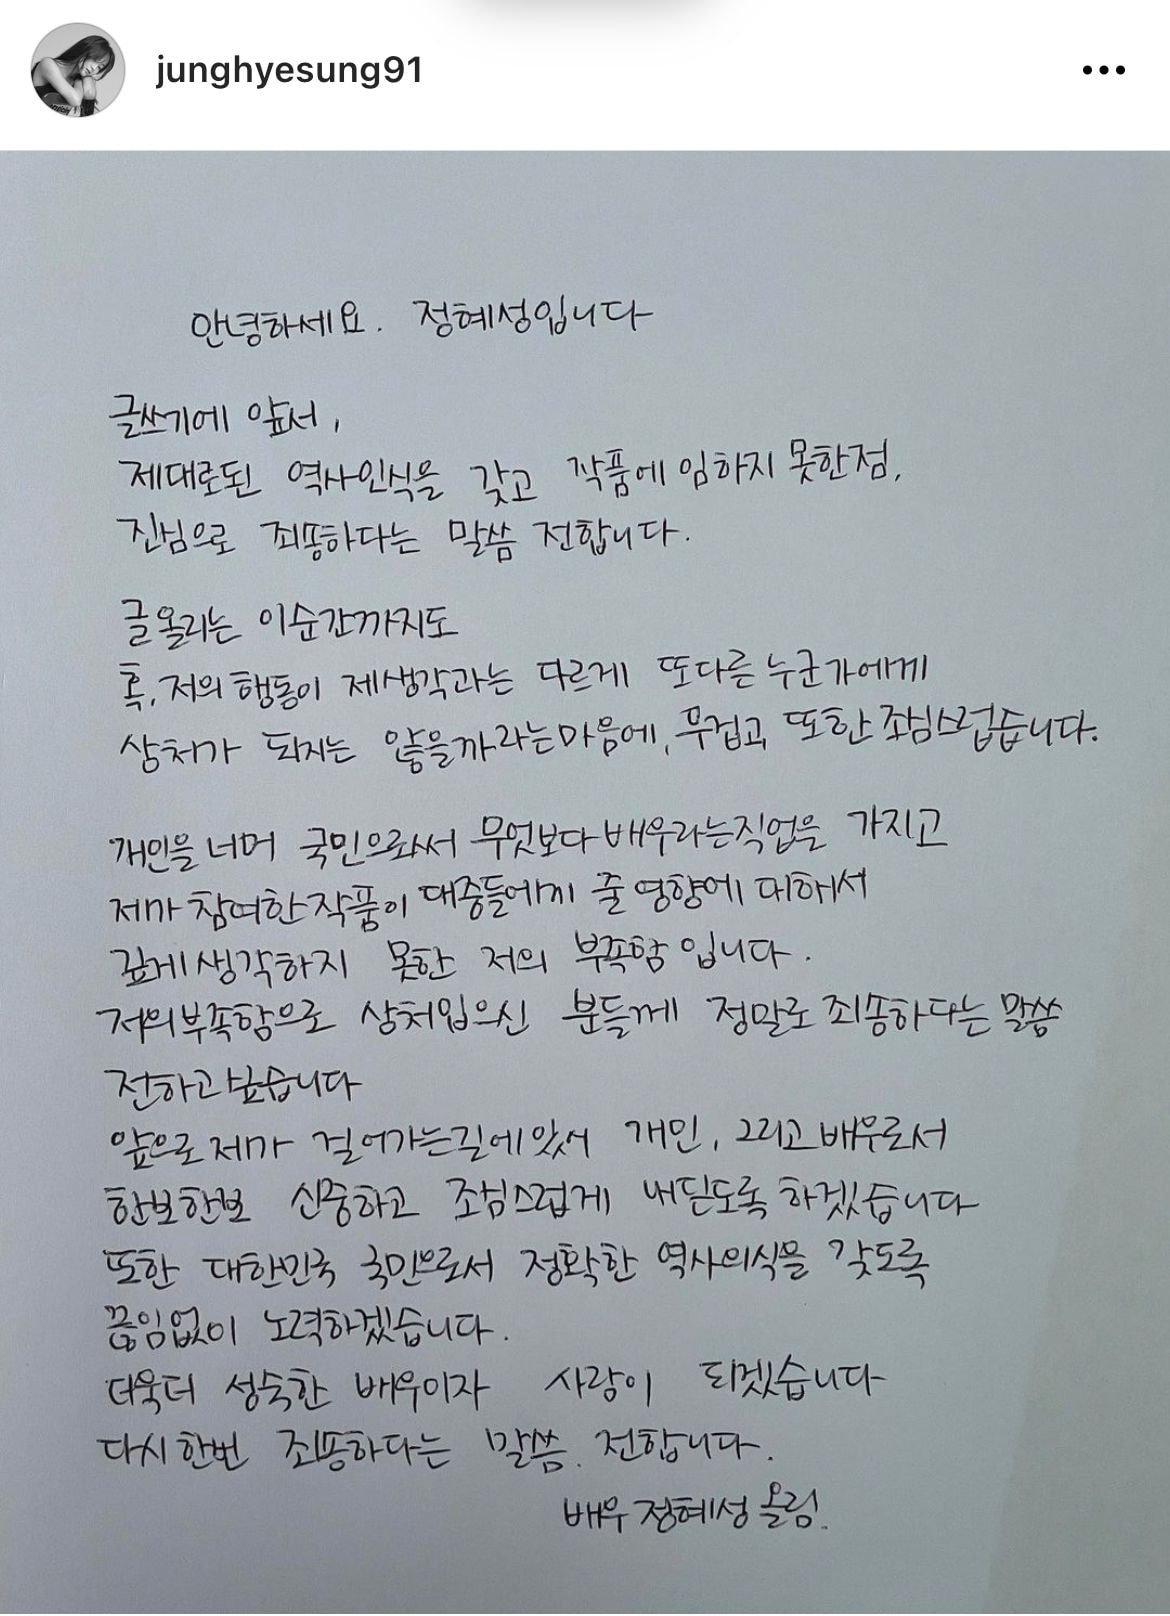 junghyesung91
안녕하세요. 정혜성입니다
글쓰기에 앞서,
제대로된 역사인식을 갖고 작품에 임하지 못한점,
진심으로 죄송하다는 말씀 전합니다.
글올리는 이순간까지도
혹, 저의 행동이 제생각과는 다르게 또다른 누군가에게
상처가 되지는 않을까라는마음에, 무겁고, 또한 조심스럽습니다.
개인을 너머 국민으로써 무엇보다 배우라는직업을 가지고
제가 참여한 작품이 대중들에게 줄 영향에 대해서
깊게 생각하지 못한 저의 부족함 입니다.
저의부족함으로 상처입으신 분들께 정말로 죄송하다는 말씀
전하고싶습니다
앞으로 제가 걸어가는길에 있서 개인, 그리고 배우로서
한보한보 신중하고 조심스럽게 내딛도록 하겠습니다
또한 대한민국 국민으로서 정확한 역사의식을 갖도록
끊임없이 노력하겠습니다.
더욱더 성숙한 배우이자 사람이 되겠습니다
다시 한번 죄송하다는 말씀. 전합니다.
배우 정혜성 올림.